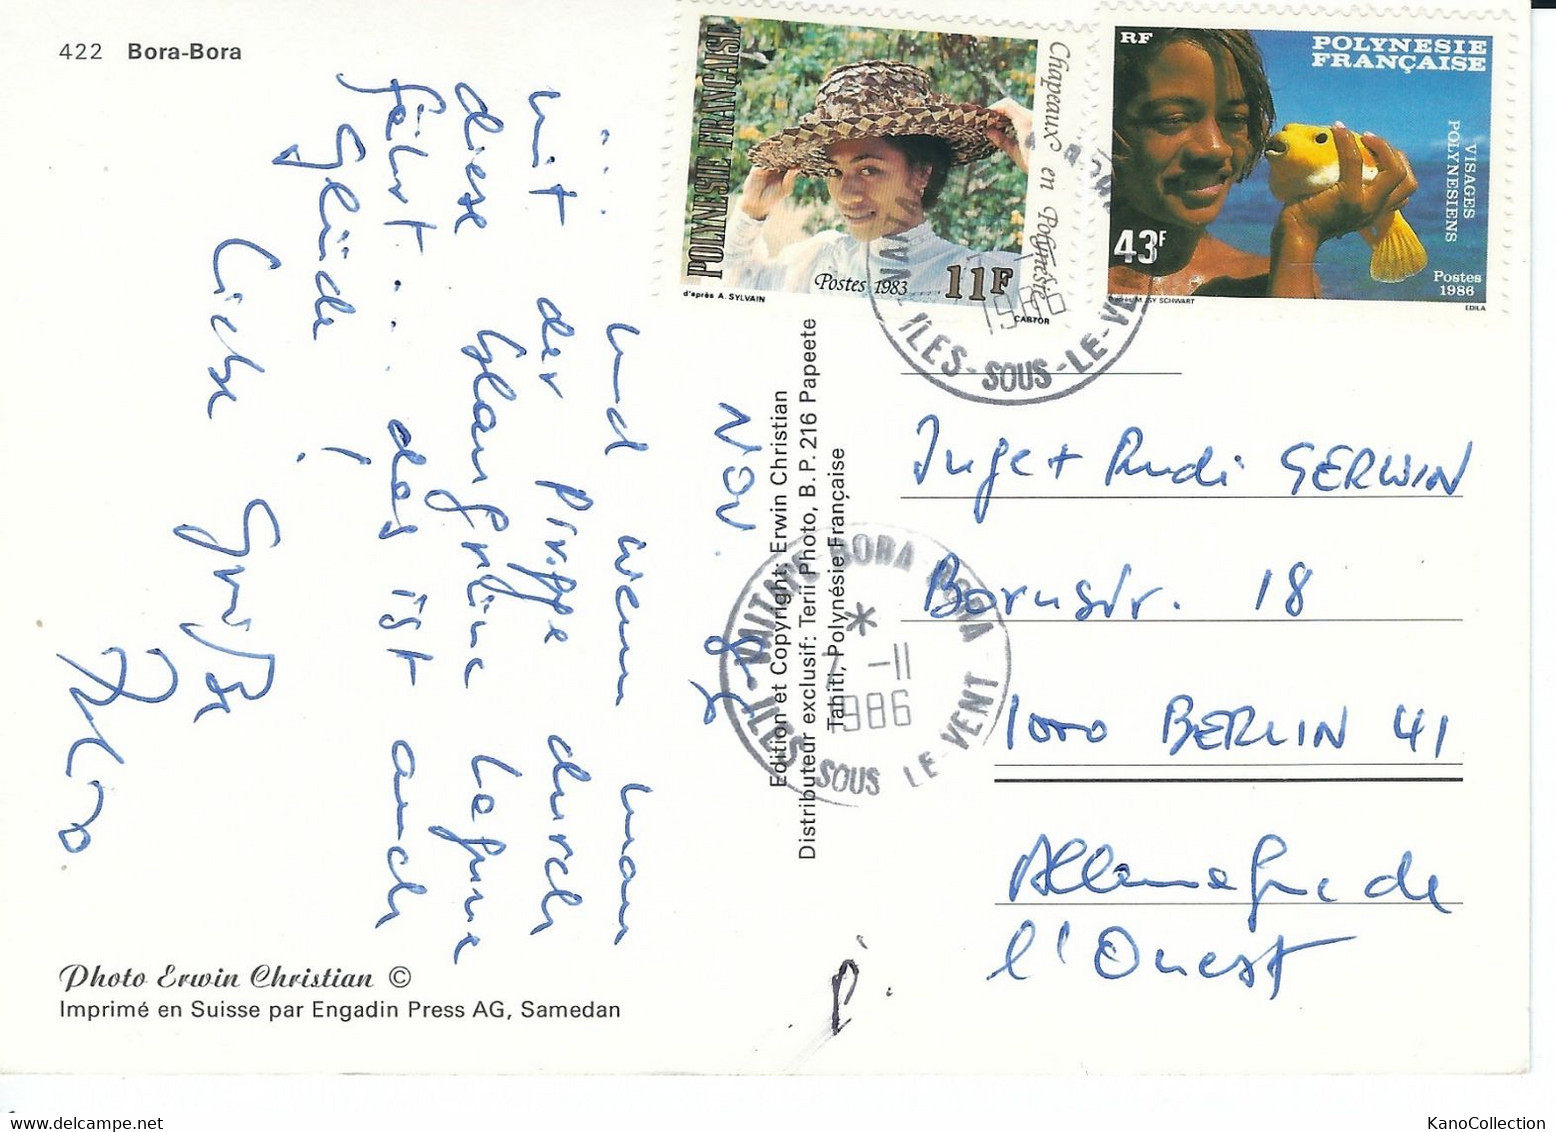 422 Bora-Bora
POLYNESIE FRANÇAISE
Chapeaux en Polynésie
Postes 1983
11F
d'après A. SYLVAIN
CARTOR
RF
POLYNESIE
FRANÇAISE
VISAGES
POLYNESIENS
43F
Postes
1986
EDILA
ILES-SOUS-LE-VE
NOV. 86
... und wenn man
mit der Piroge durch
diese blaugrüne Lagune
fährt... das ist auch
Glück!
Liebe Grüße
Edition et Copyright: Erwin Christian
Distributeur exclusif: Terii Photo, B.P. 216 Papeete
Tahiti, Polynésie Française
VAITAPE-BORA BORA
*
7 -11
1986
ILES SOUS LE-VENT
Inge + Rudi GERWIN
Bornstr. 18
1000 BERLIN 41
Allemagne de
l'Ouest
P.
Photo Erwin Christian ©
Imprimé en Suisse par Engadin Press AG, Samedan
www.delcampe.net
KanoCollection